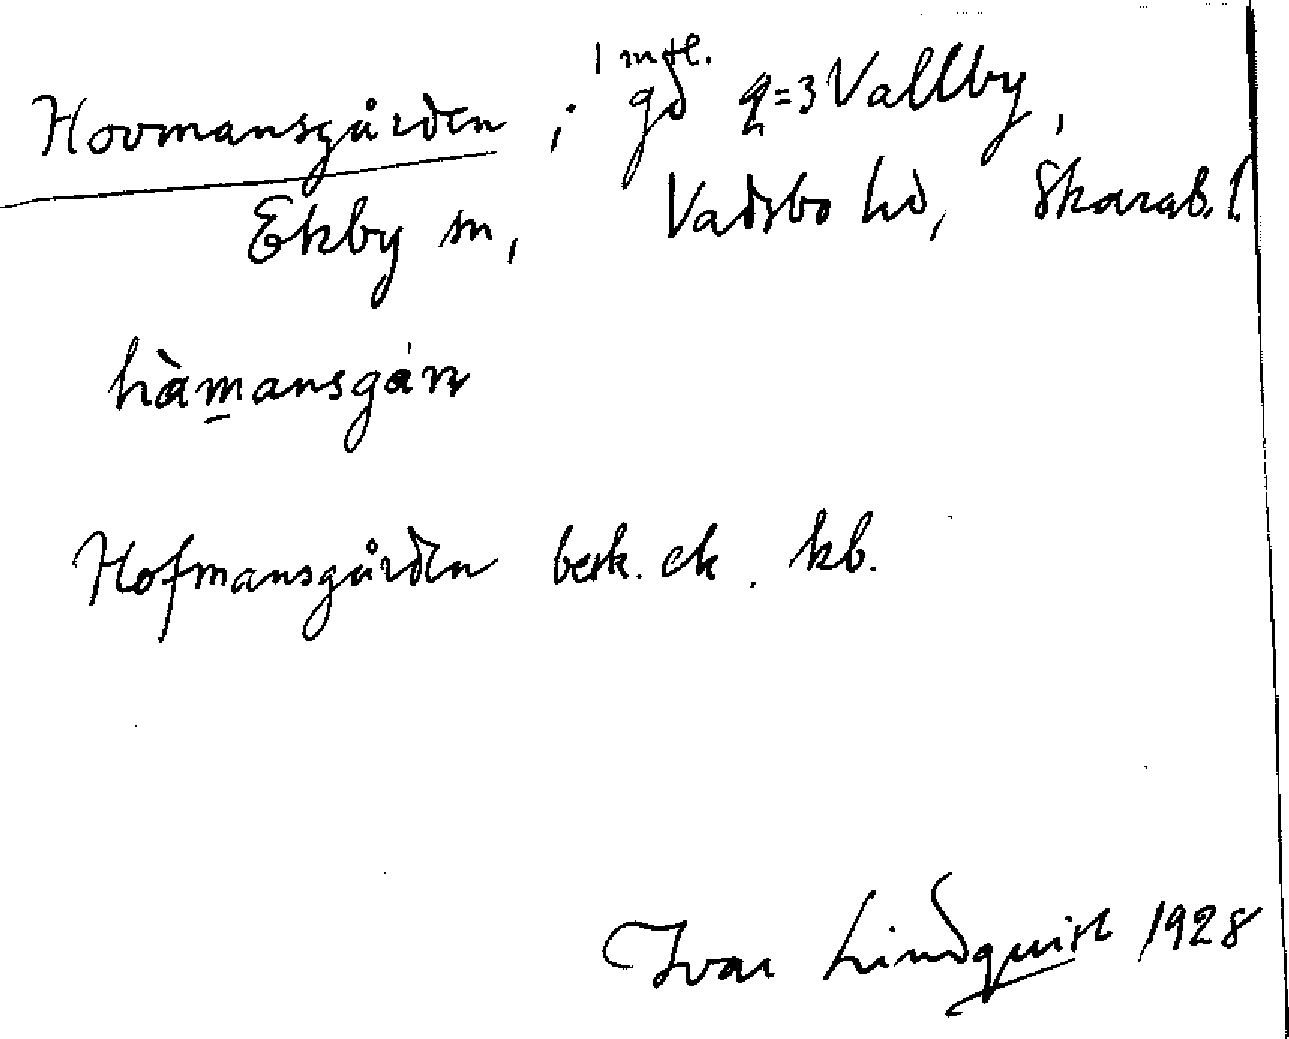 Hovmansgården ; 1 mtl. gd 2=3 Vallby,
Ekby sn, Vadsbo hd, Skarab. l.
hàmansgán
Hofmansgården besk. ek. kb.
Ivar Lindquist 1928